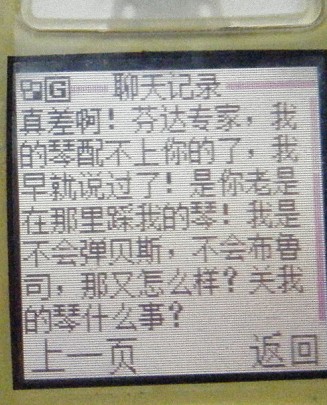 G 聊天记录
真差啊！芬达专家，我
的琴配不上你的了，我
早就说过了！是你老是
在那里踩我的琴！我是
不会弹贝斯，不会布鲁
司，那又怎么样？关我
的琴什么事？
上一页 返回